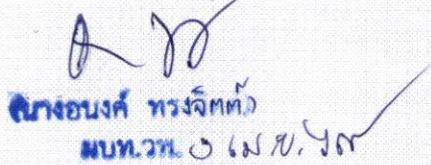 (นางอนงค์ ทรงจิตต์)
ผบท.วท. ๖ เม.ย. ๖๗